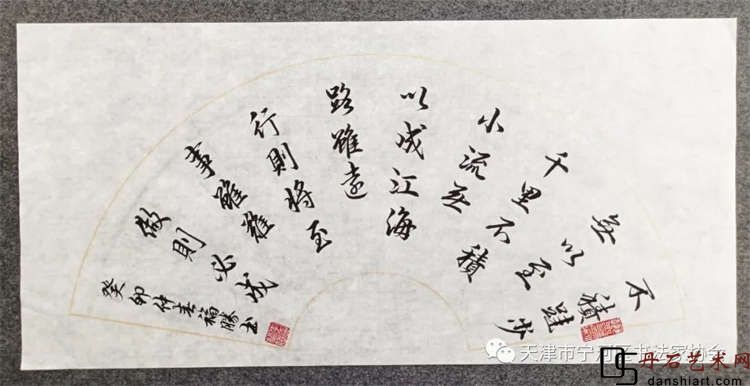 不積跬步
無以至
千里不積
小流無
以成江海
路雖遠
行則將至
事雖難
做則必成
癸卯仲春福勝書
天津市宁河区书法家协会
丹石艺术网
danshiart.com